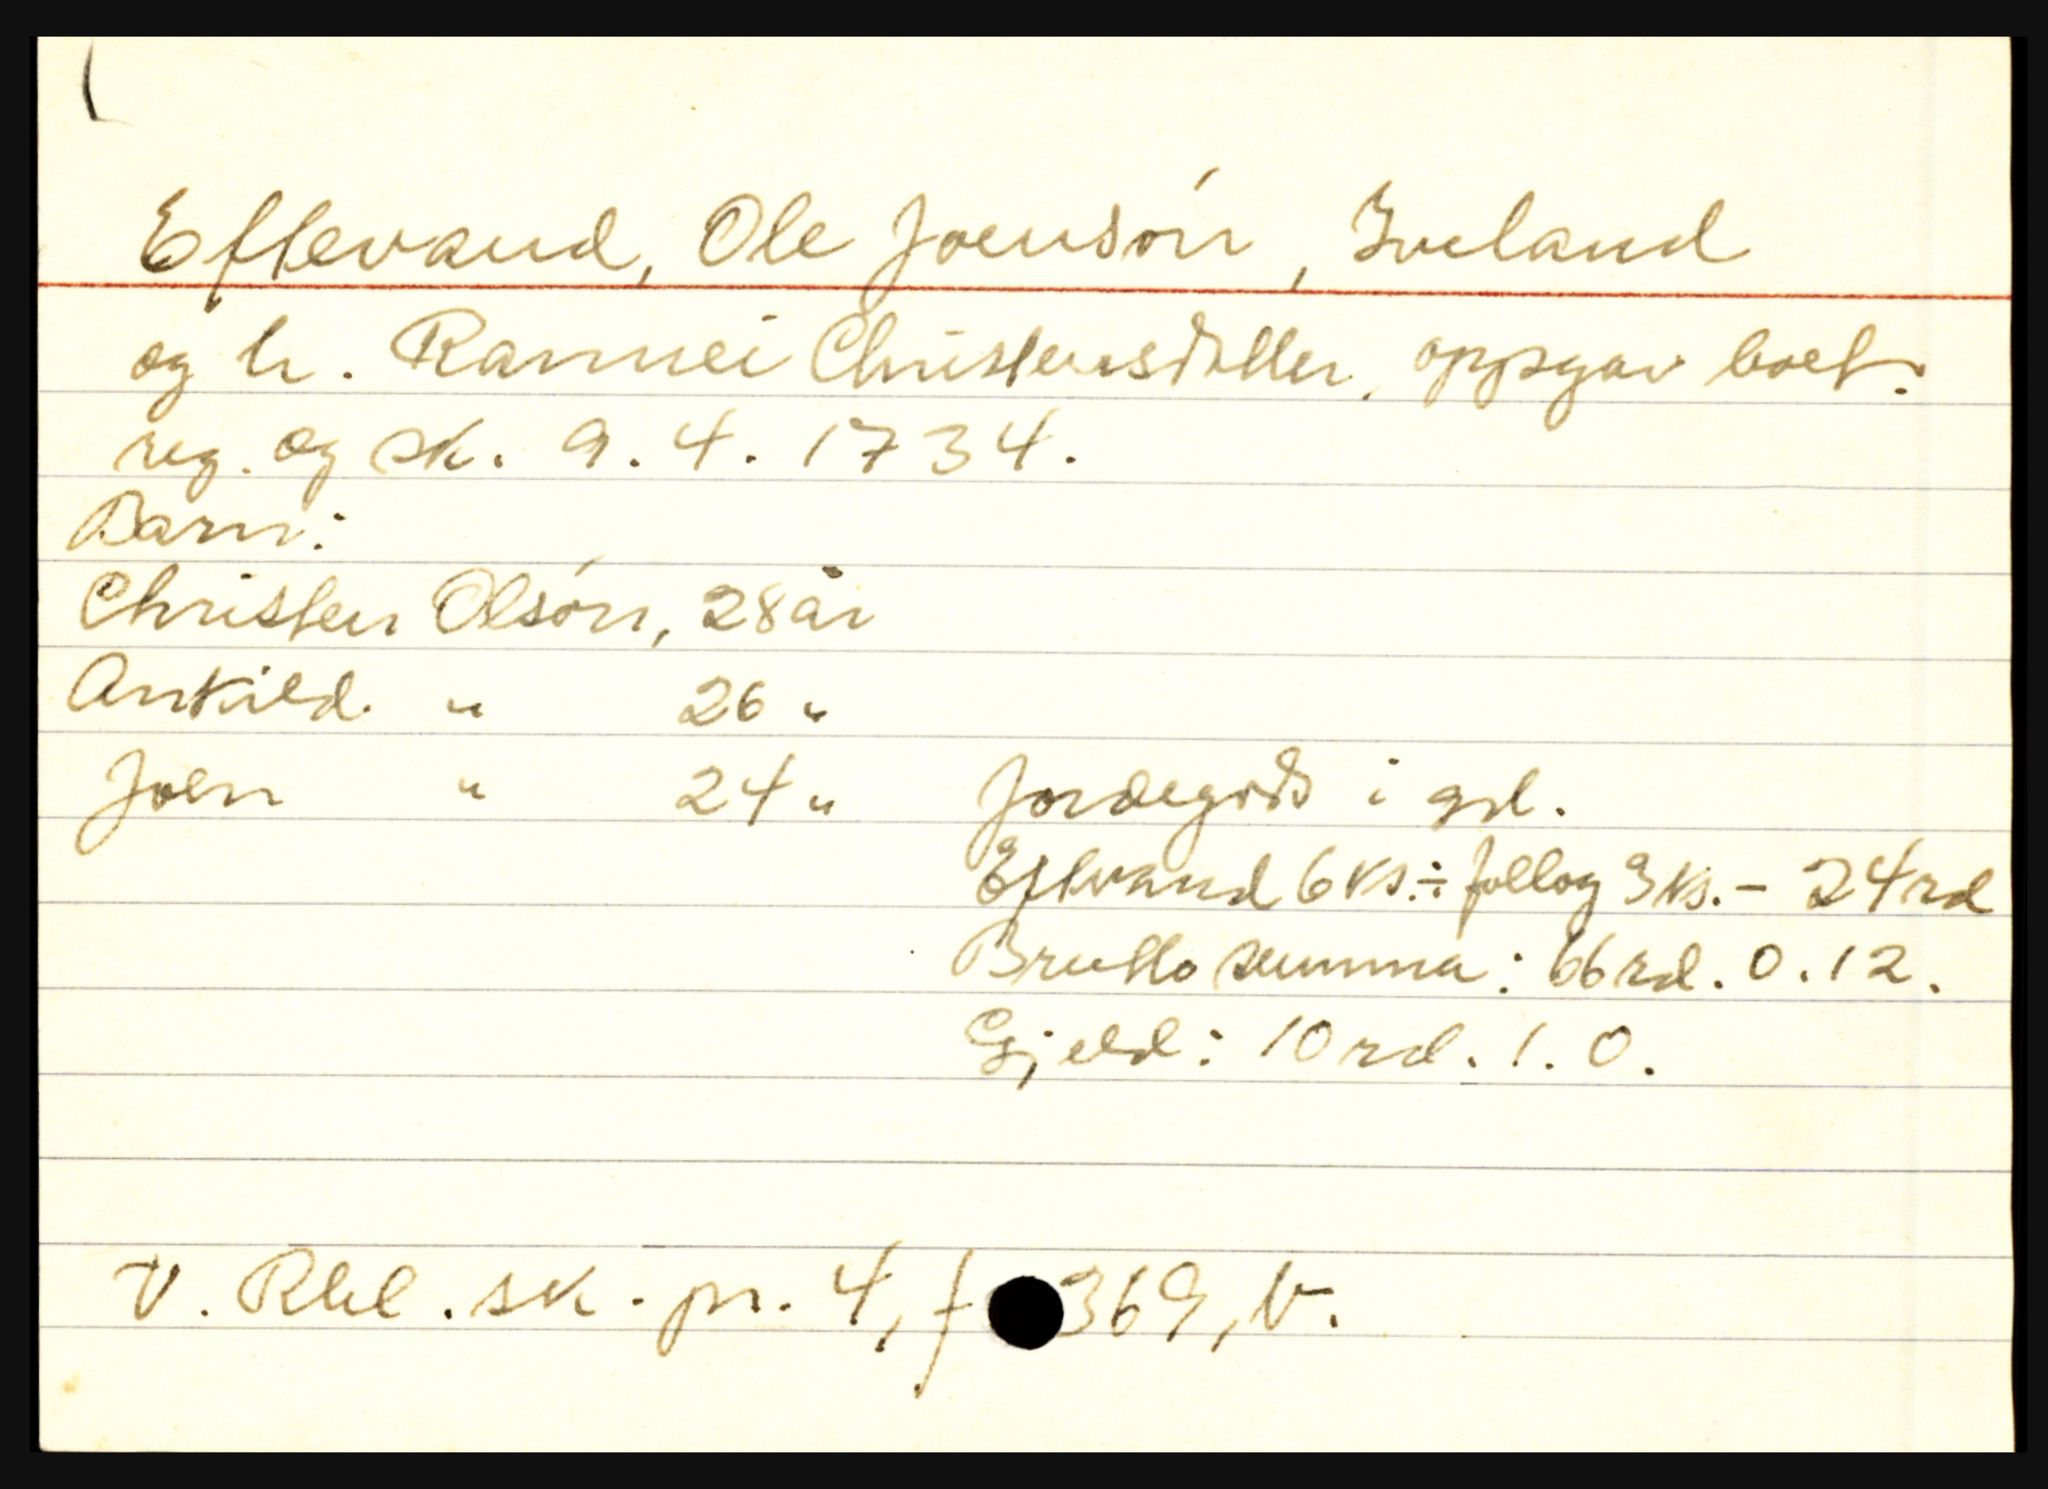 Eftevand, Ole Joensön, Iveland
og h. Rannei Christensdatter, oppgav boet.
reg. og sk. 9. 4. 1734.
Barn:
Christen Olsön, 28 år
Ankild " 26 "
Joen " 24 " Jordegods i gd.
Eftevand 6 ks. ÷ follog 3 ks. - 24 rd
Brutto summa: 66 rd. 0. 12.
Gjeld: 10 rd. 1. 0.
V. Rbl. sk. pr. 4, f 369, b.